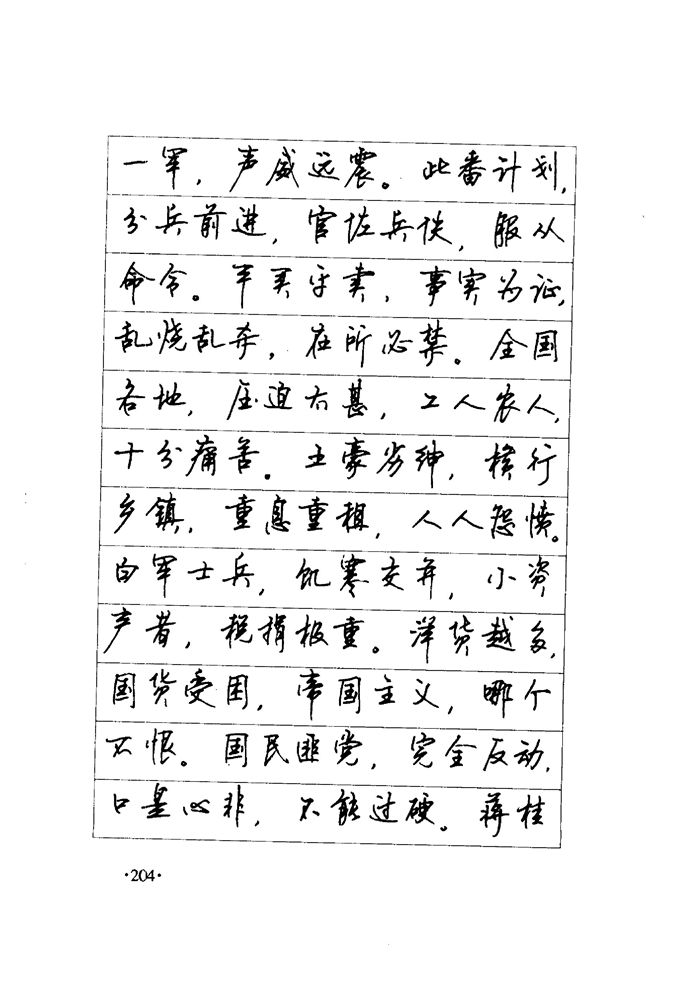 一军，声威远震。此番计划，
分兵前进，官佐兵伕，服从
命令。平买平卖，事实为证，
乱烧乱杀，在所必禁。全国
各地，压迫太甚，工人农人，
十分痛苦。土豪劣绅，横行
乡镇，重息重租，人人怨愤。
白军士兵，饥寒交并，小资
产者，税捐极重。洋货越多，
国货受困，帝国主义，哪个
不恨。国民匪党，完全反动，
口是心非，不能过硬。蒋桂
·204·